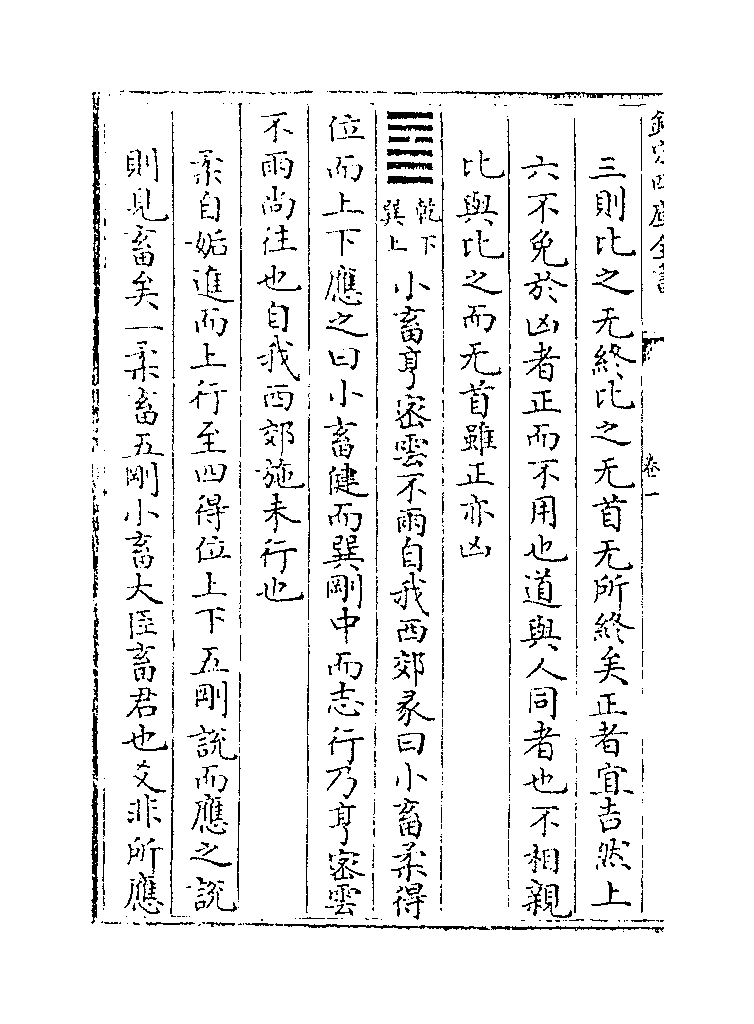 欽定四庫全書
卷一
三則比之无終比之无首无所終矣正者宜吉然上
六不免於凶者正而不用也道與人同者也不相親
比與比之而无首雖正亦凶
乾下
巽上
小畜亨密雲不雨自我西郊彖曰小畜柔得
位而上下應之曰小畜健而巽剛中而志行乃亨密雲
不雨尚往也自我西郊施未行也
柔自姤進而上行至四得位上下五剛說而應之說
則見畜矣一柔畜五剛小畜大臣畜君也爻非所應